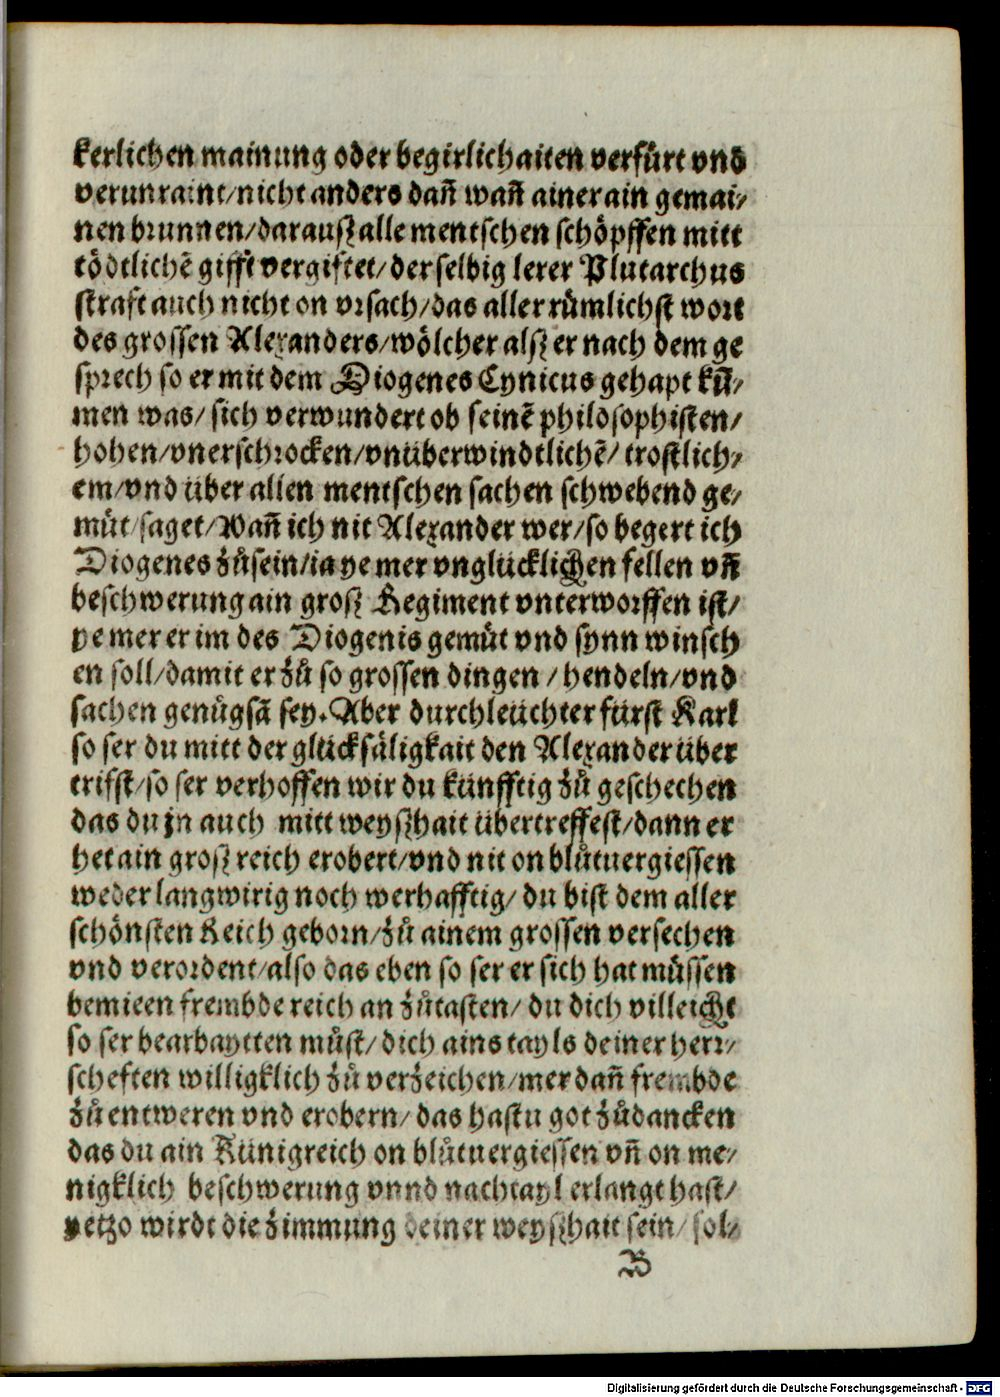 kerlichen mainung oder begirlichaiten verfürt vnd
verunraint/nicht anders dañ wañ ainer ain gemai/
nen brunnen/darausz alle mentschen schöpffen mitt
tödtlichē gifft vergiftet/der selbig lerer Plutarchus
straft auch nicht on vrsach/das aller rümlichst wort
des grossen Alexanders/wölcher alsz er nach dem ge
sprech so er mit dem Diogenes Cynicus gehapt kū/
men was/sich verwundert ob seinē philosophisten/
hohen/vnerschrocken/vnüberwindtlichē/trostlich/
em/vnd über allen mentschen sachen schwebend ge/
müt/saget/Wañ ich nit Alexander wer/so begert ich
Diogenes zůsein/ia ye mer vnglücklichen fellen vñ
beschwerung ain grosz Regiment vnterworffen ist/
ye mer er im des Diogenis gemůt vnd synn winsch
en soll/damit er zů so grossen dingen/hendeln/vnd
sachen genůgsā sey. Aber durchleüchter fürst Karl
so ser du mitt der glücksäligkait den Alexander über
trifst/so ser verhoffen wir du künfftig zů geschechen
das du jn auch mitt weyszhait übertreffest/dann er
het ain grosz reich erobert/vnd nit on blůtuergiessen
weder langwirig noch werhafftig/du bist dem aller
schönsten Reich geborn/zů ainem grossen versechen
vnd verordent/also das eben so ser er sich hat müssen
bemieen frembde reich an zůtasten/du dich villeicht
so ser bearbaytten můst/dich ains tayls deiner herr/
scheften willigklich zů verzeichen/mer dañ frembde
zů entweren vnd erobern/das hastu got zůdancken
das du ain Künigreich on blůtuergiessen vñ on me/
nigklich beschwerung vnnd nachtayl erlangt hast/
yetzo wirdt die zimmung deiner weyszhait sein/sol/
B
Digitalisierung gefördert durch die Deutsche Forschungsgemeinschaft - DFG